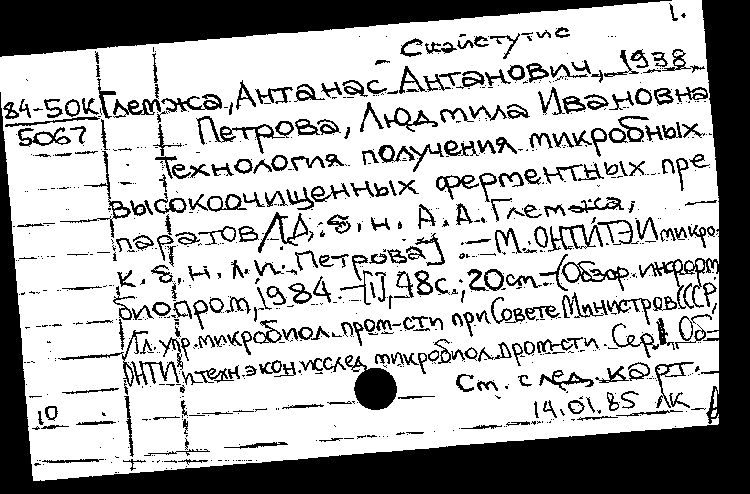 1.
Скайстутис
84-50К Глемжа, Антанас Антанович, 1938,
5067 Петрова, Людмила Ивановна
Технология получения микробных
высокоочищенных ферментных пре
паратов /[Д. б. н. А. А. Глемжа,
к. б. н. Л. И. Петрова]. — М. ОНТИТЭИ микро-
биопром, 1984. — [1], 48с.; 20 см. — (Обзор. информ
/Гл. упр. микробиол. пром-сти при Совете Министров СССР,
ОНТИ и техн. экон. исслед. микробиол. пром-сти. Сер. 1, Об-
См. след. карт.
10 14.01.85 ЛК